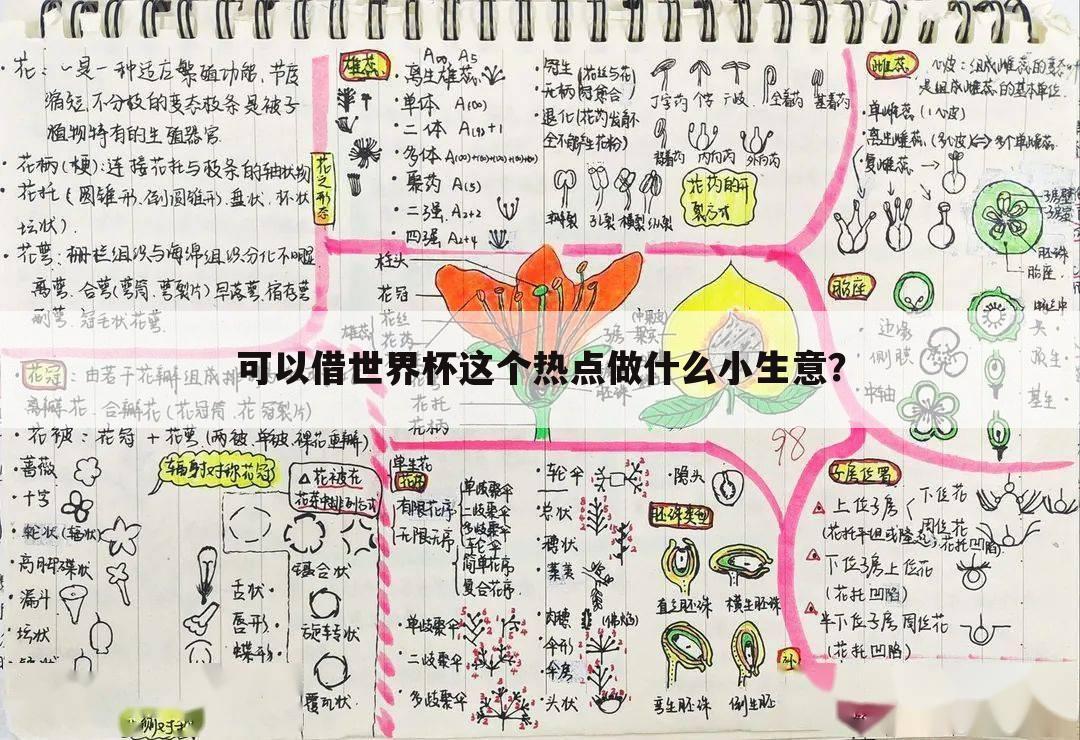 花：～是一种适应繁殖功能、节度
缩短、不分枝的变态枝条是被子
植物特有的生殖器官.
花柄(梗):连接花托与枝条的轴状物
花托(圆锥形.倒圆锥形.盘状.杯状
坛状).
花萼:栅栏组织与海绵组织分化不明显
离萼.合萼(萼筒.萼裂片)早落萼.宿存萼
副萼.冠毛状花萼.
花之形态
雄蕊
A∞, A5
离生雄蕊
单体 A(∞)
二体 A(9)+1
多体 A(∞)+(∞)+(∞)+(∞)+(∞)
聚药 A(5)
二强 A2+2
四强 A2+4
冠生(花丝与花
无柄
退化(花药发育不
全不能生花粉)
丁字药 个字 广歧 全着药 基着药
背着药 内向药 外向药
花药的开
裂方式
孔裂 横裂 纵裂
雌蕊
心皮：组成雌蕊的变态叶
是组成雌蕊的基本单位.
单雌蕊(1心皮)
复雌蕊
子房壁
子房室
胚珠
胎座
胎座
边缘
侧膜
中轴
基生
柱头
花冠
花丝
花药
雄蕊
子房
花托
花柄
胚珠
可以借世界杯这个热点做什么小生意？
98
花冠：由若干花瓣组成
离瓣花.合瓣花(花冠筒.花冠裂片)
花被：花冠+花萼(两被.单被.裸花.重瓣)
蔷薇
十字
轮状(辐状)
高脚碟状
漏斗
坛状
辐射对称花冠
△花被在
花芽中排列方式
镊合状
旋转状
覆瓦状
舌状
唇形
蝶形
单生花
花序
有限花序
无限花序
单歧聚伞
二歧聚伞
多歧聚伞
轮伞
简单花序
复合花序
单歧聚伞
二歧聚伞
多歧聚伞
轮伞
总状
穗状
葇荑
肉穗 (佛焰)
伞形
伞房
头状
隐头
胚珠类型
直生胚珠 横生胚珠
弯生胚珠 倒生胚
补
子房位置
上位子房
下位花
周位花
(花托平坦或隆起) 花托凹陷)
下位子房上位花
(花托凹陷)
半下位子房周位花
(花托凹陷)